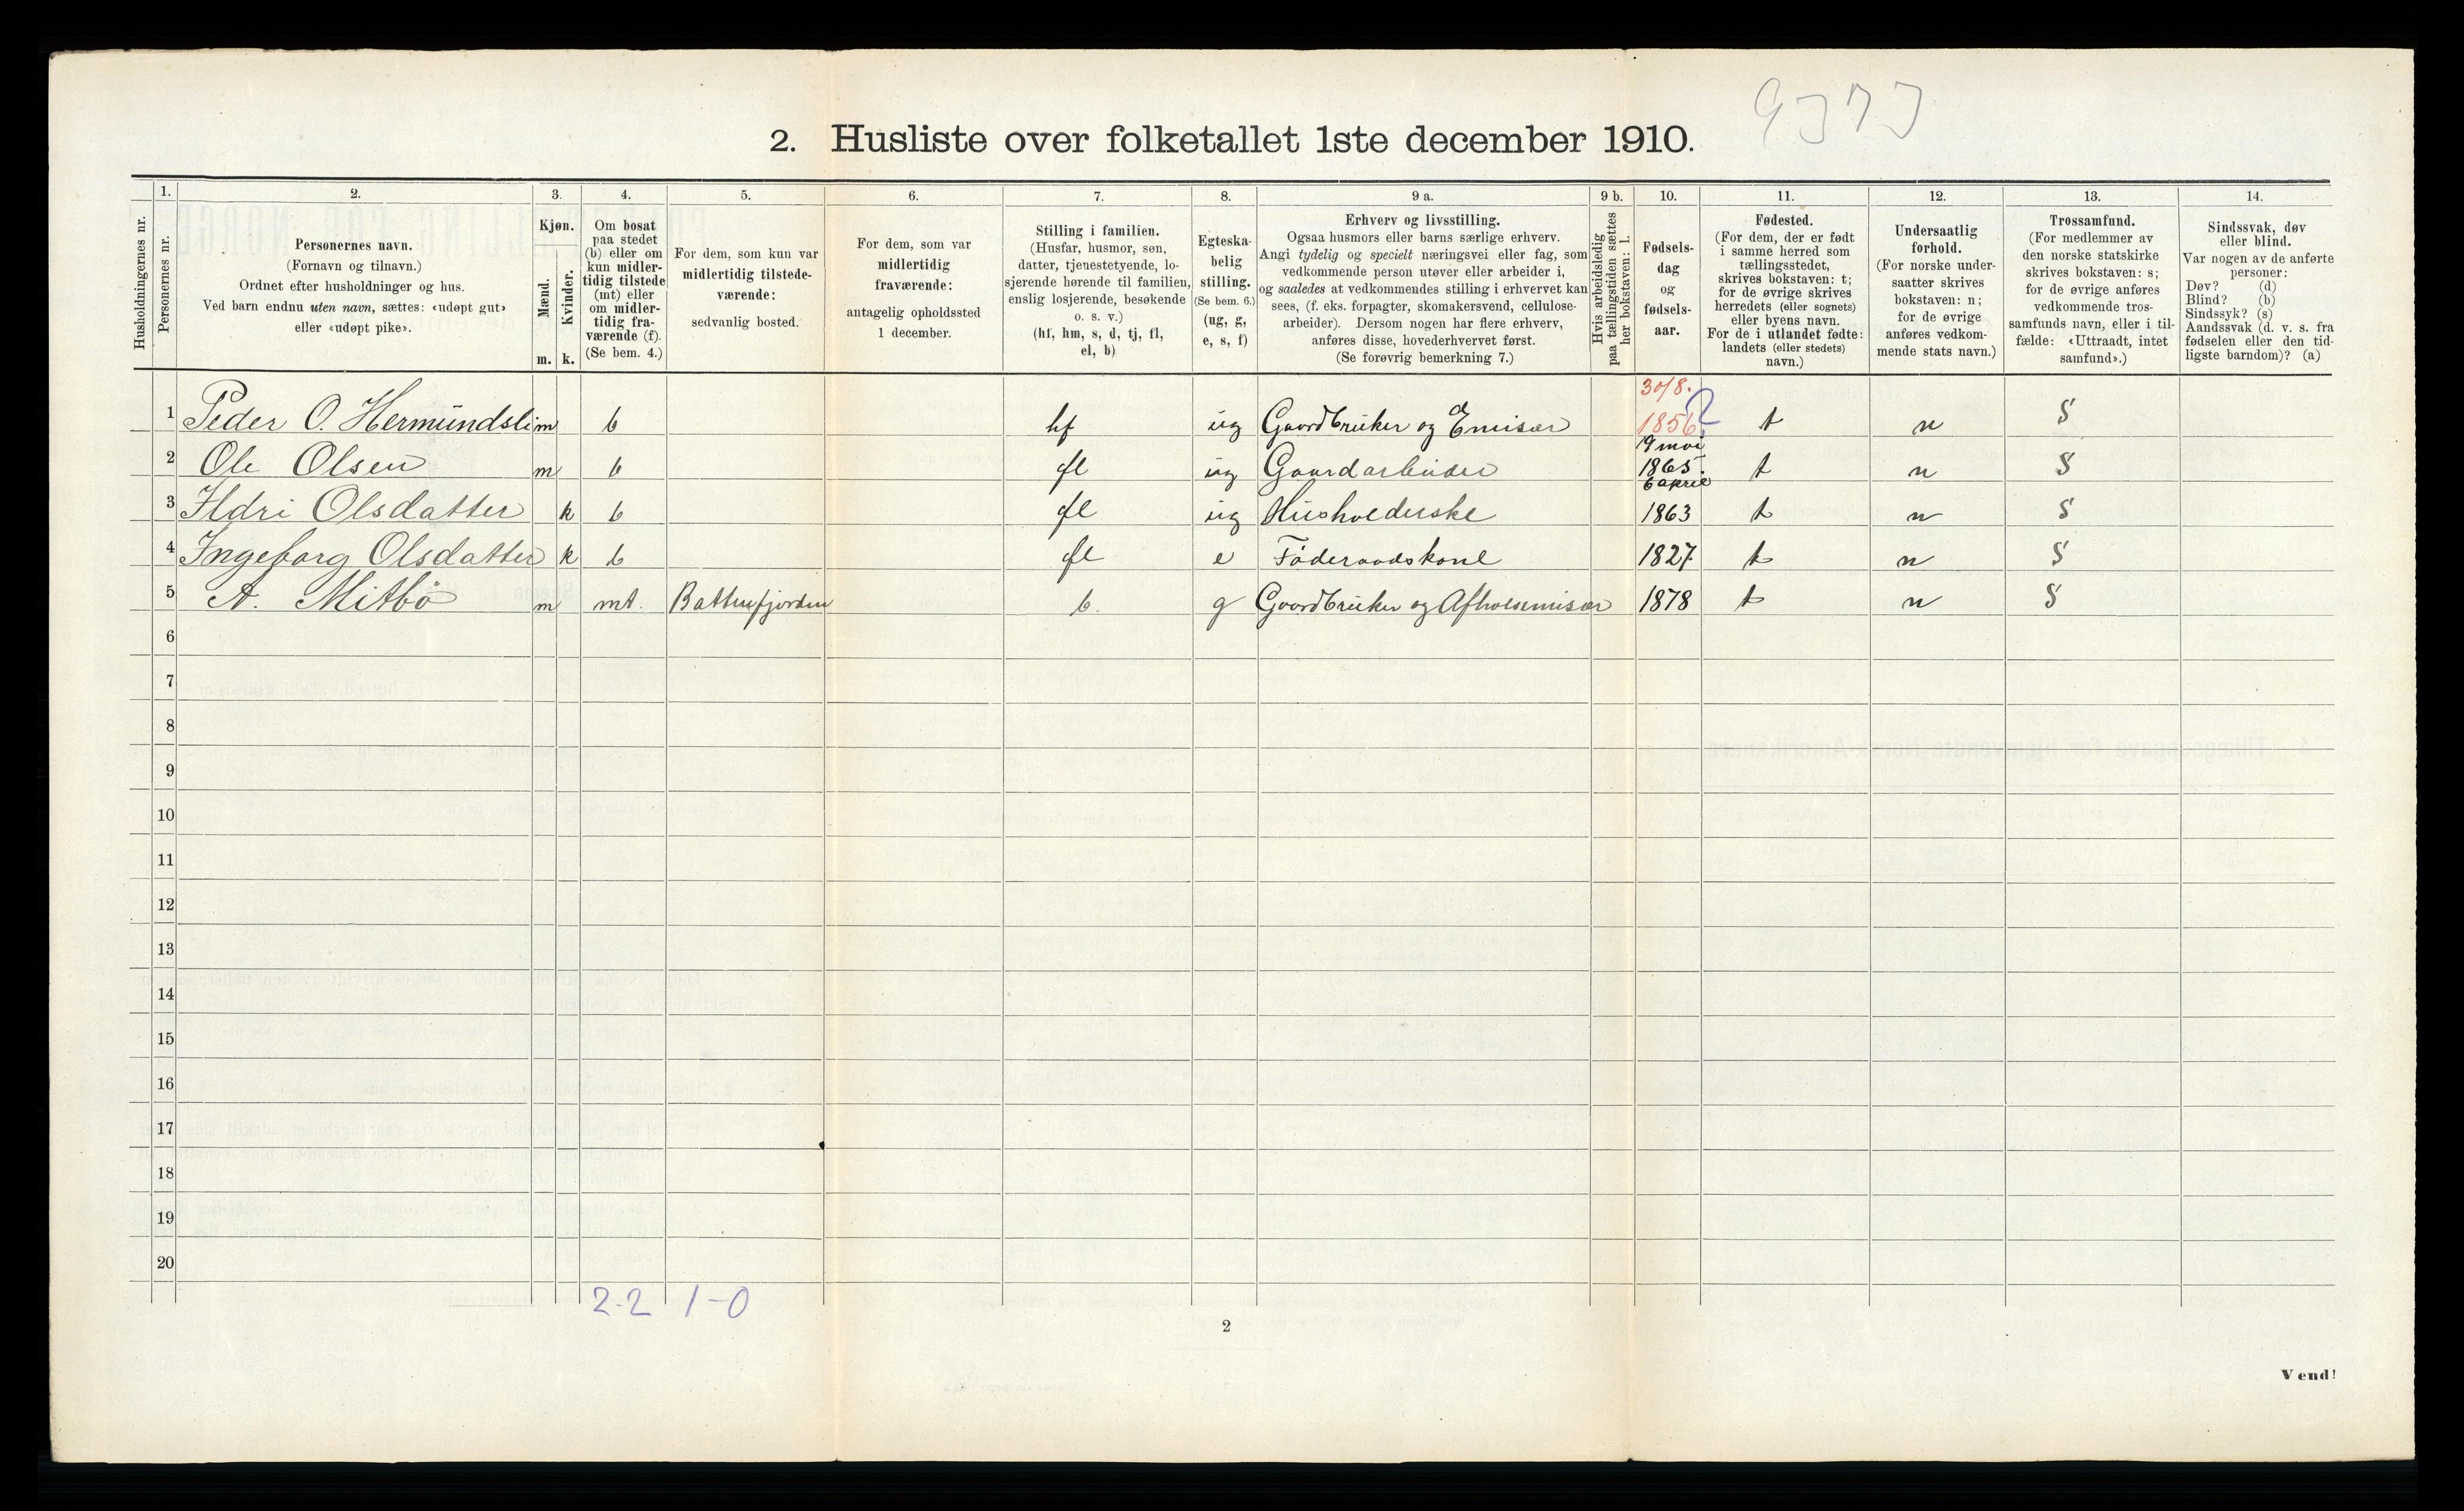 2. Husliste over folketallet 1ste december 1910.
1. 2. 3. 4. 5. 6. 7. 8. 9 a. 9 b. 10. 11. 12. 13. 14.
Husholdningernes nr.
Personernes nr.
Personernes navn.
(Fornavn og tilnavn.)
Ordnet efter husholdninger og hus.
Ved barn endnu uten navn, sættes: «udøpt gut»
eller «udøpt pike».
Kjøn.
Mænd.
Kvinder.
m. k.
Om bosat
paa stedet
(b) eller om
kun midler-
tidig tilstede
(mt) eller
om midler-
tidig fra-
værende (f).
(Se bem. 4.)
For dem, som kun var
midlertidig tilstede-
værende:
sedvanlig bosted.
For dem, som var
midlertidig
fraværende:
antagelig opholdssted
1 december.
Stilling i familien.
(Husfar, husmor, søn,
datter, tjenestetyende, lo-
sjerende hørende til familien,
enslig losjerende, besøkende
o. s. v.)
(hf, hm, s, d, tj, fl,
el, b)
Egteska-
belig
stilling.
(Se bem. 6.)
(ug, g,
e, s, f)
Erhverv og livsstilling.
Ogsaa husmors eller barns særlige erhverv.
Angi tydelig og specielt næringsvei eller fag, som
vedkommende person utøver eller arbeider i,
og saaledes at vedkommendes stilling i erhvervet kan
sees, (f. eks. forpagter, skomakersvend, cellulose-
arbeider). Dersom nogen har flere erhverv,
anføres disse, hovederhvervet først.
(Se forøvrig bemerkning 7.)
Hvis arbeidsledig
paa tællingstiden sættes
her bokstaven: l.
Fødsels-
dag
og
fødsels-
aar.
Fødested.
(For dem, der er født
i samme herred som
tællingsstedet,
skrives bokstaven: t;
for de øvrige skrives
herredets (eller sognets)
eller byens navn.
For de i utlandet fødte:
landets (eller stedets)
navn.)
Undersaatlig
forhold.
(For norske under-
saatter skrives
bokstaven: n;
for de øvrige
anføres vedkom-
mende stats navn.)
Trossamfund.
(For medlemmer av
den norske statskirke
skrives bokstaven: s;
for de øvrige anføres
vedkommende tros-
samfunds navn, eller i til-
fælde: «Uttraadt, intet
samfund».)
Sindssvak, døv
eller blind.
Var nogen av de anførte
personer:
Døv? (d)
Blind? (b)
Sindssyk? (s)
Aandssvak (d. v. s. fra
fødselen eller den tid-
ligste barndom)? (a)
30/8.
1 Peder O. Hermundsli m b hf ug Gaardbruker og Emisær 1856 ? t n S
19 mai
2 Ole Olsen m b fl ug Gaardarbeider 1865. t n S
6 april
3 Ildri Olsdatter k b fl ug Husholderske 1863 t n S
4 Ingeborg Olsdatter k b fl e Føderaadskone 1827 t n S
5 A. Mitbö m mt. Battenfjorden b. g Gaardbruker og Afholsemisær 1878 t n S
6
7
8
9
10
11
12
13
14
15
16
17
18
19
20
2-2 1-0
2
Vend!